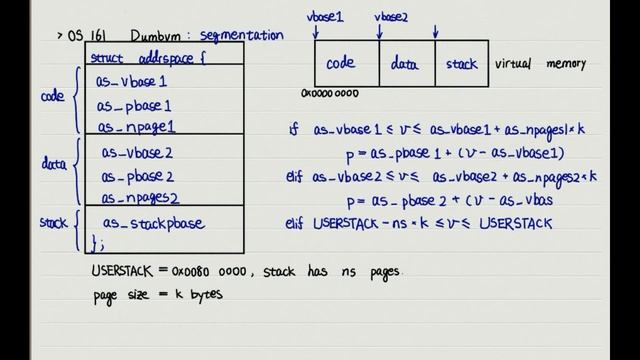 > OS 161 Dumbvm : segmentation
struct addrspace {
code
as_vbase1
as_pbase1
as_npage1
data
as_vbase2
as_pbase2
as_npages2
stack
as_stackpbase
};
USERSTACK = 0x0080 0000, stack has ns pages.
page size = k bytes
vbase1 vbase2
code data stack virtual memory
0x0000 0000
if as_vbase1 ≤ v ≤ as_vbase1 + as_npages1*k
p = as_pbase1 + (v - as_vbase1)
elif as_vbase2 ≤ v ≤ as_vbase2 + as_npages2*k
p = as_pbase2 + (v - as_vbas
elif USERSTACK - ns*k ≤ v ≤ USERSTACK